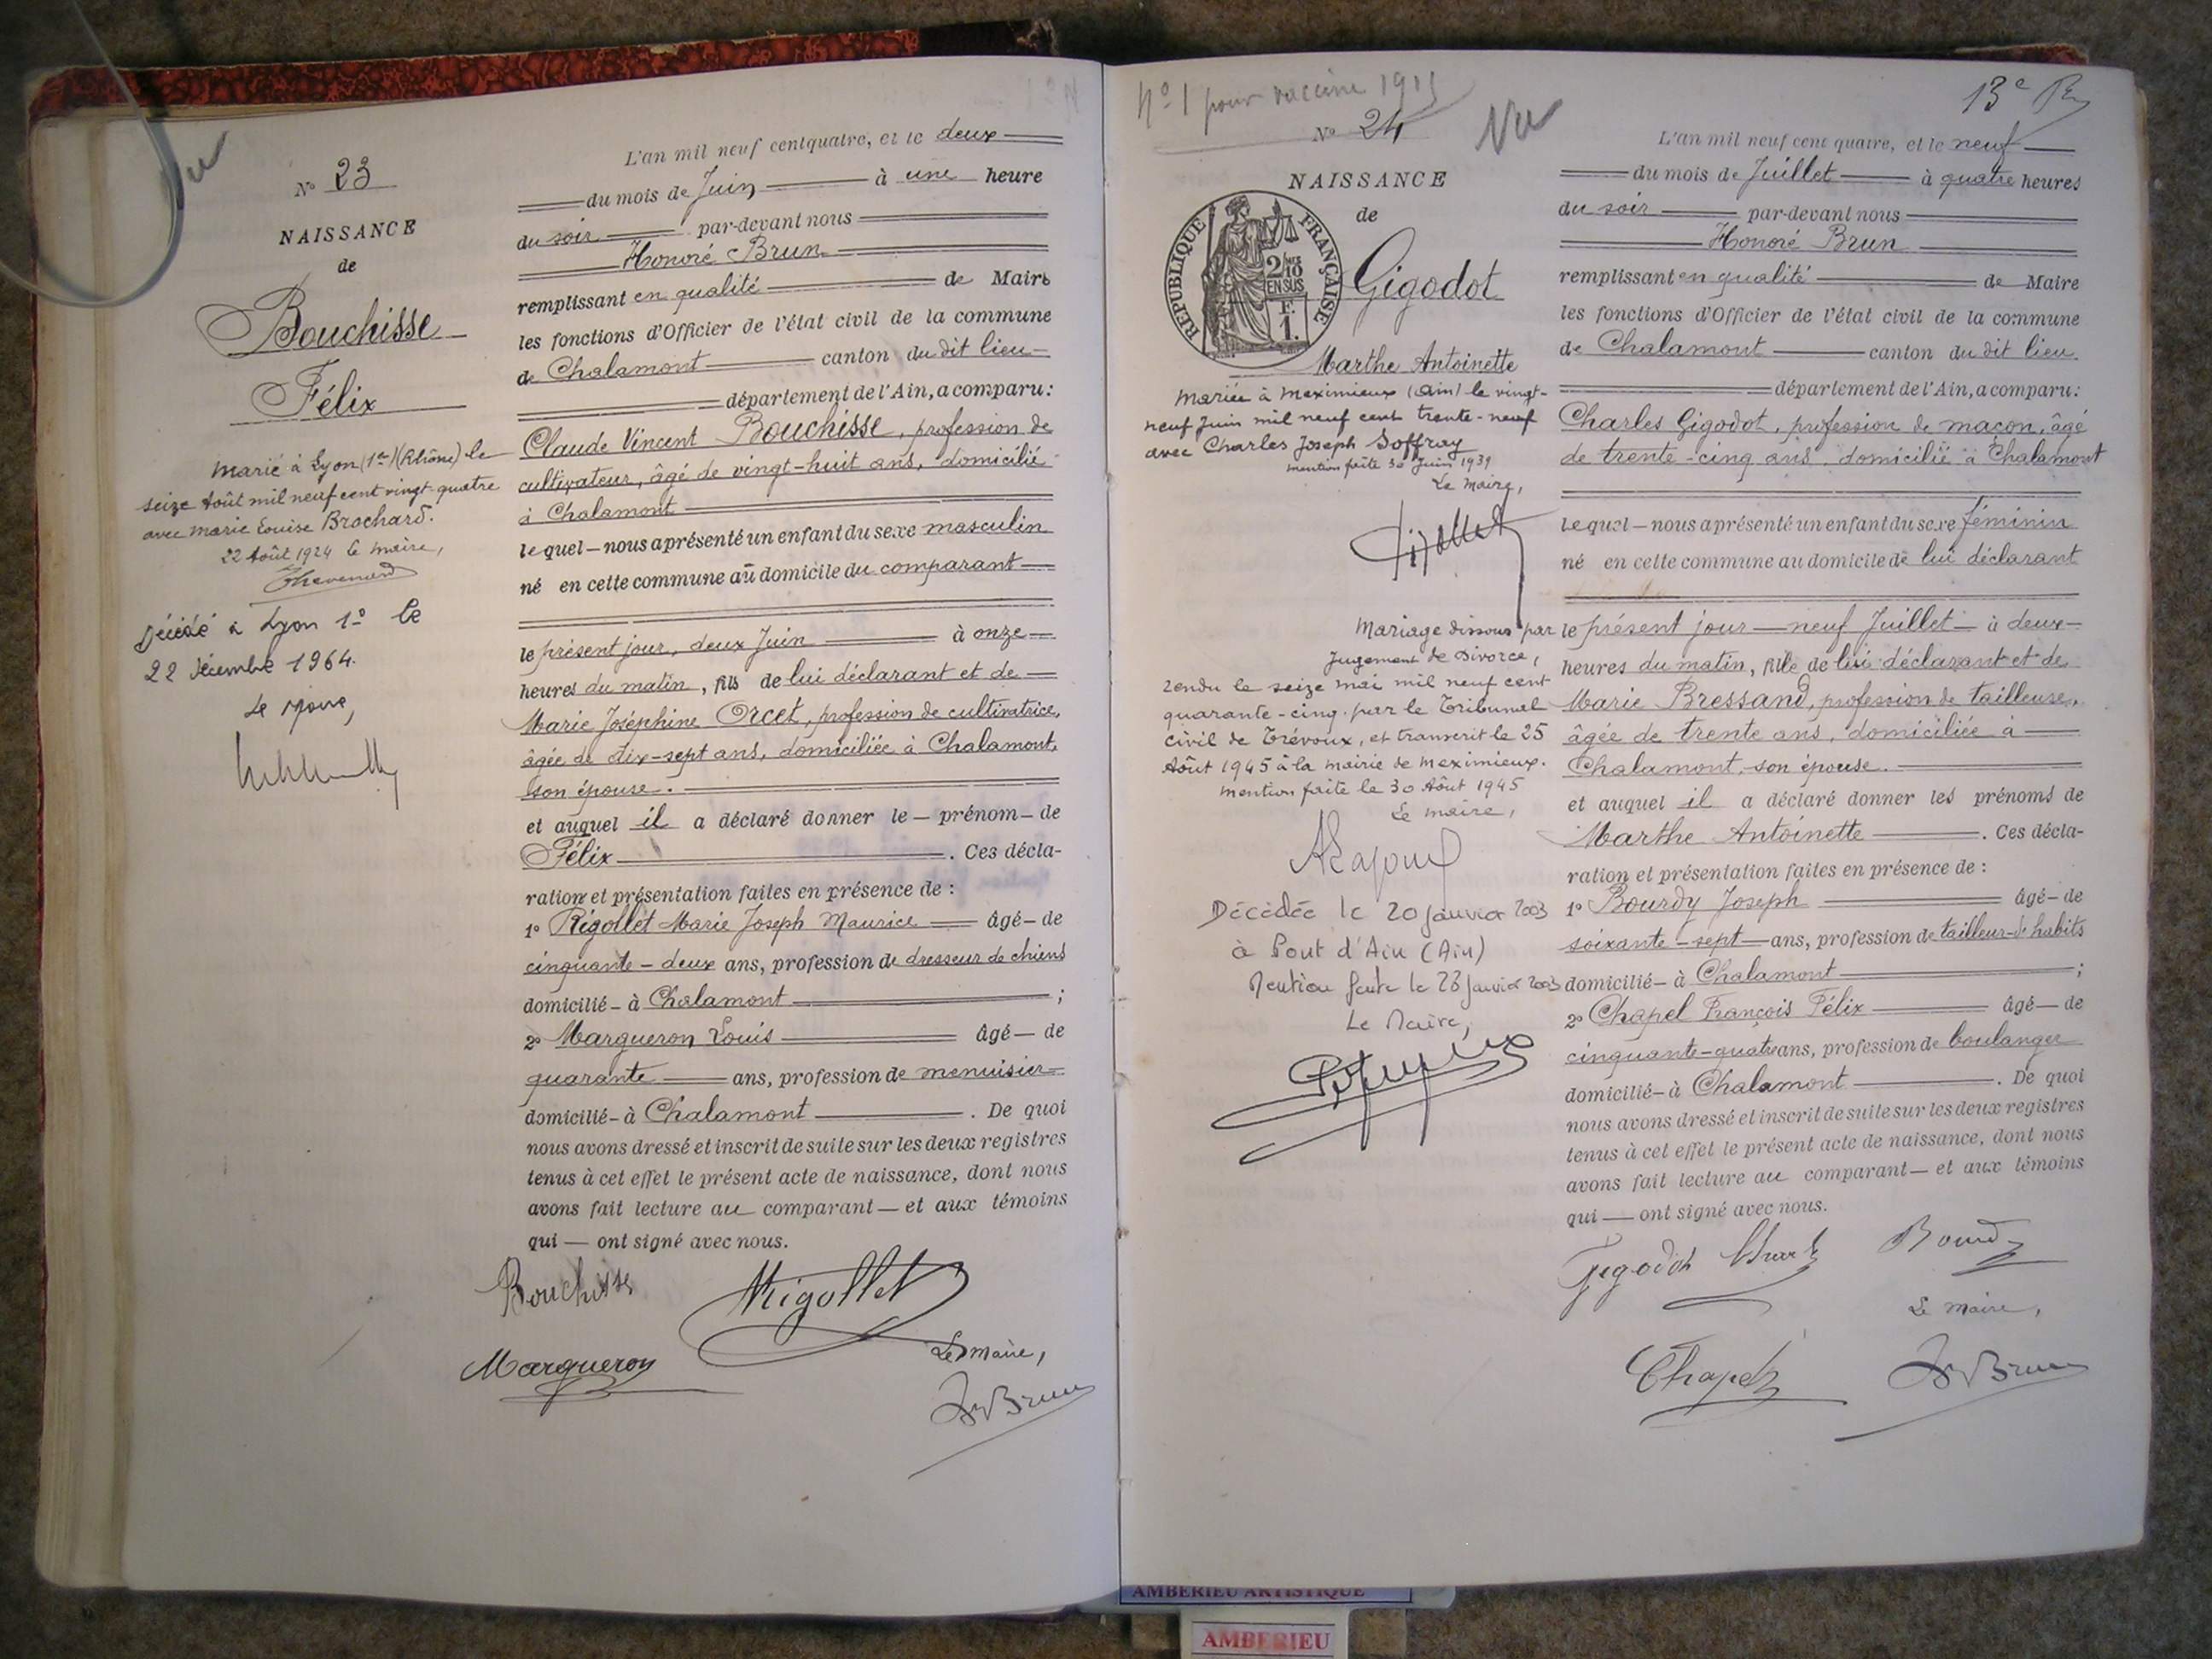 Vu
N° 23
NAISSANCE
de
Bouchisse
Félix
Marié à Lyon (1er) (Rhône) le
seize Août mil neuf cent vingt-quatre
avec Marie Louise Brochard.
22 Août 1924 Le Maire,
Thevenard
Décédé à Lyon 1° le
22 Décembre 1964.
Le Maire,
L'an mil neuf cent quatre, et le deux
du mois de Juin à une heure
du soir par-devant nous
Honoré Brun
remplissant en qualité de Maire
les fonctions d'Officier de l'état civil de la commune
de Chalamont canton du dit lieu
département de l'Ain, a comparu:
Claude Vincent Bouchisse, profession de
cultivateur, âgé de vingt-huit ans, domicilié
à Chalamont
lequel – nous a présenté un enfant du sexe masculin
né en cette commune au domicile du comparant
le présent jour, deux Juin à onze
heures du matin, fils de lui déclarant et de
Marie Joséphine Orcet, profession de cultivatrice,
âgée de dix-sept ans, domiciliée à Chalamont,
son épouse.
et auquel il a déclaré donner le – prénom – de
Félix. Ces décla-
ration et présentation faites en présence de :
1° Rigollet Marie Joseph Maurice âgé – de
cinquante-deux ans, profession de dresseur de chiens
domicilié – à Chalamont ;
2° Margueron Louis âgé – de
quarante ans, profession de menuisier
domicilié – à Chalamont. De quoi
nous avons dressé et inscrit de suite sur les deux registres
tenus à cet effet le présent acte de naissance, dont nous
avons fait lecture au comparant – et aux témoins
qui – ont signé avec nous.
Bouchisse MRigollet
Margueron Le Maire,
H Brun
N° 1 pour vaccine 1915
N° 24 Vu
NAISSANCE
de
RÉPUBLIQUE FRANÇAISE
2/10 MES
EN SUS
F.
1.
Gigodot
Marthe Antoinette
Mariée à Meximieux (Ain) le vingt-
neuf Juin mil neuf cent trente-neuf
avec Charles Joseph Joffray
Mention faite 30 Juin 1939
Le Maire,
Mariage dissous par
Jugement de Divorce,
rendu le seize mai mil neuf cent
quarante-cinq par le Tribunal
civil de Trévoux, et transcrit le 25
Août 1945 à la mairie de Meximieux.
Mention faite le 30 Août 1945
Le Maire,
Décédée le 20 janvier 2003
à Pont d'Ain (Ain)
Mention faite le 23 janvier 2003
Le Maire,
13e
L'an mil neuf cent quatre, et le neuf
du mois de Juillet à quatre heures
du soir par-devant nous
Honoré Brun
remplissant en qualité de Maire
les fonctions d'Officier de l'état civil de la commune
de Chalamont canton du dit lieu
département de l'Ain, a comparu:
Charles Gigodot, profession de maçon, âgé
de trente-cinq ans, domicilié à Chalamont
lequel – nous a présenté un enfant du sexe féminin
né en cette commune au domicile de lui déclarant
le présent jour – neuf Juillet – à deux
heures du matin, fille de lui déclarant et de
Marie Bressand, profession de tailleuse,
âgée de trente ans, domiciliée à
Chalamont, son épouse.
et auquel il a déclaré donner les prénoms de
Marthe Antoinette. Ces décla-
ration et présentation faites en présence de :
1° Bourdy Joseph âgé – de
soixante-sept ans, profession de tailleur d'habits
domicilié – à Chalamont ;
2° Chapel François Félix âgé – de
cinquante-quatre ans, profession de boulanger
domicilié – à Chalamont. De quoi
nous avons dressé et inscrit de suite sur les deux registres
tenus à cet effet le présent acte de naissance, dont nous
avons fait lecture au comparant – et aux témoins
qui – ont signé avec nous.
Gigodot Charle Bourdy
Le Maire,
Chapel H Brun
AMBERIEU ARTISTIQUE
AMBERIEU